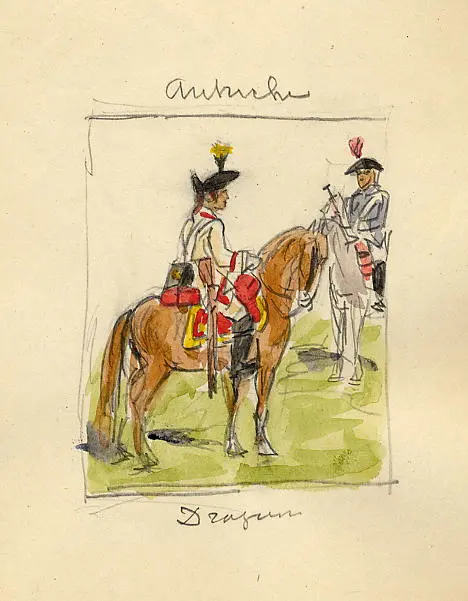 Autriche
Dragons